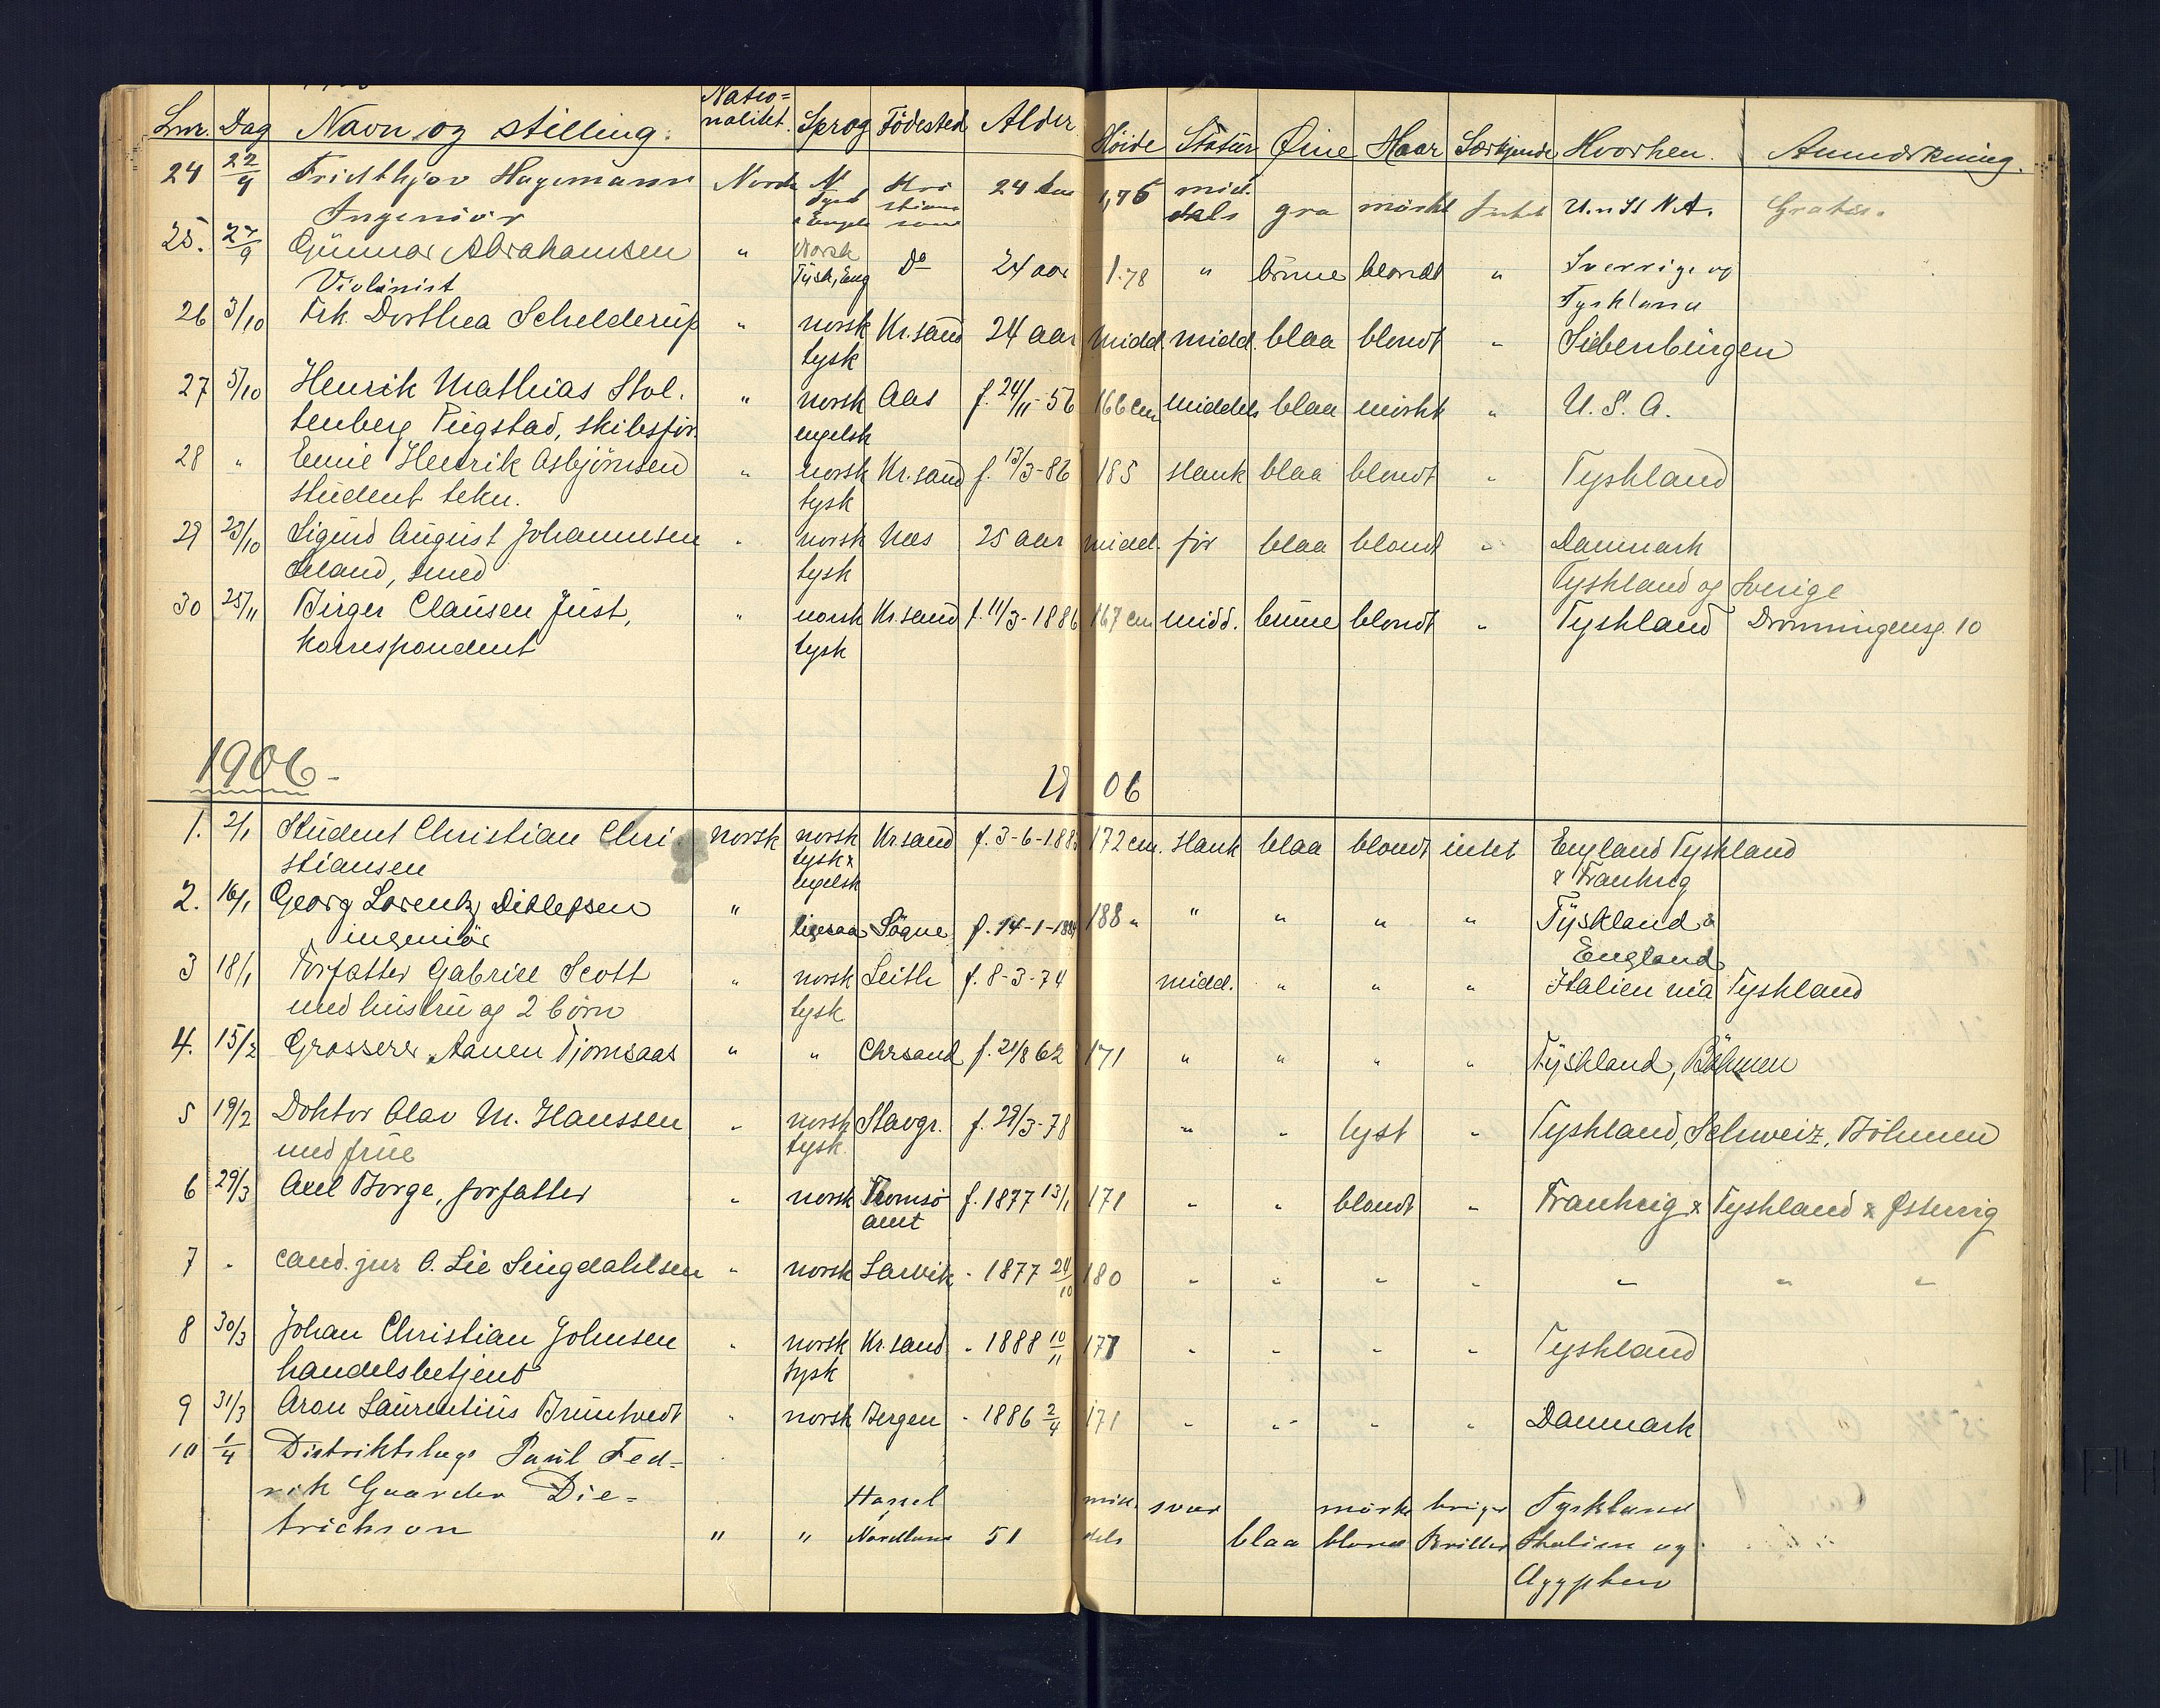 Lnr. Dag Navn og stilling. Natio= nalitet. Sprog Födested Alder Höide Statur Øine Haar Særkjende Hvorhen. Anmærkning.
24 22/9 Fridthjov Hagemann Norsk N Kri 24 aar 1,76 mid. graa mörkt Intet U.n St N.A. Gratis.
Ingeniör Tysk stians dels
Engelsk sand
25. 27/9 Gunnar Abrahamsen " Norsk Do 24 aar 1.78 " brune blondt " Sverrige og
Violinist Tysk, Eng Tyskland
26 3/10 Frk. Dorthea Schelderup " norsk Kr.sand 24 aar Midd. midd. blaa blondt " Siebenbürgen
tysk
27 5/10 Henrik Mathias Stol. " norsk Aas f. 24/11-56 166 cm middels blaa mörkt " U. S. A.
tenberg Pugstad, skibsför. engelsk
28 " Emil Henrik Asbjörnsen " norsk Kr.sand f. 13/3-86 185 slank blaa blondt " Tyskland
student tekn. tysk
29 23/10 Sigurd August Johannesen " norsk Næs 25 aar midd. för blaa blondt " Danmark
smed tysk Tyskland og Sverige
30 25/11 Birger Clausen Just, " norsk Kr.sand f. 11/3-1886 167 cm midd. brune blondt " Tyskland Dronningensg. 10
Korrespondent tysk
1906- 19 06
1. 2/1 Student Christian Chri norsk norsk Kr.sand f. 3-6-188 172 cm. slank blaa blondt intet England Tyskland
stiansen tysk & engelsk & Frankrig
2. 16/1 Georg Lorentz Ditlefsen " ligesaa Sögne f. 14-1-188 188 " " " " " Tyskland &
ingeniör England
3 18/1 Forfatter Gabriel Scott " norsk Leith f. 8-3-74 midd. " " " Italien via Tyskland
med hustru og 2 börn tysk
4. 15/2 Grosserer Aanen Tjomsaas " " Chrsand f. 21/8 62 171 " " " " Tyskland, Böhmen
5 19/2 Doktor Olav M. Hanssen " norsk Stavgr. f. 29/3-78 " " lyst " Tyskland, Schweiz, Böhmen
med frue tysk.
6 29/3 Axel Borge, forfatter " norsk Tromsö f. 1877 13/1 171 " " blondt " Frankrig & Tyskland & Østerrig
amt
7 " cand. jur O. Lie Singdahlsen " norsk Larvik " 1877 24/10 180 " " " " " " "
8 30/3 Johan Christian Johnsen " norsk Kr.sand " 1888 10/11 177 " " " " Tyskland
handelsbetjent tysk
9 31/3 Aron Laurentius Bruntvedt " norsk Bergen " 1886 2/4 171 " " " " Danmark
10 1/4 Distriktslæge Paul Fed=
rik Gaarder Die= Hassel mid svær mörke bruger Tyskland
trichson " " Nordland 51 dels blaa blond Briller Italien og
Ægypten